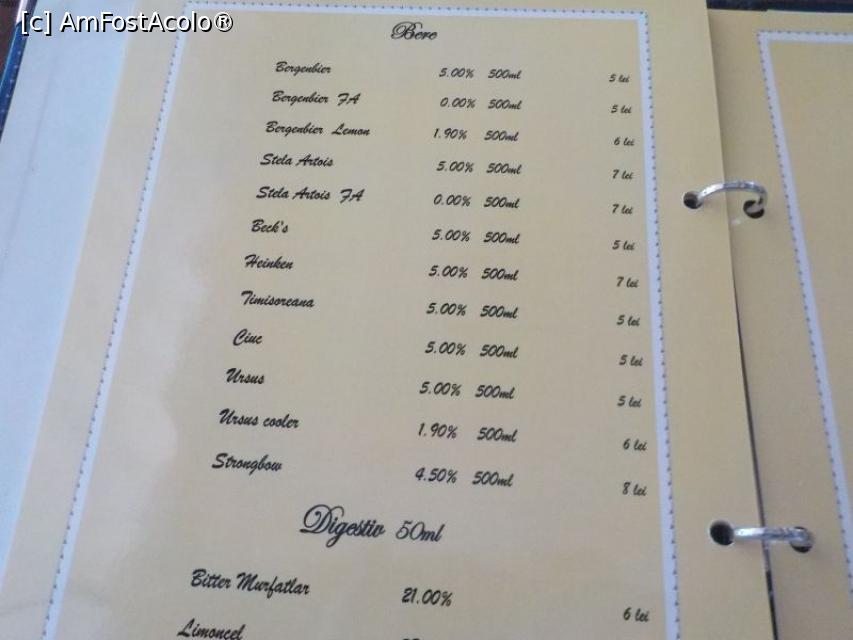 [c] AmFostAcolo®
Bere
Bergenbier 5.00% 500ml 5 lei
Bergenbier FA 0.00% 500ml 5 lei
Bergenbier Lemon 1.90% 500ml 6 lei
Stela Artois 5.00% 500ml 7 lei
Stela Artois FA 0.00% 500ml 7 lei
Beck's 5.00% 500ml 5 lei
Heinken 5.00% 500ml 7 lei
Timisoreana 5.00% 500ml 5 lei
Ciuc 5.00% 500ml 5 lei
Ursus 5.00% 500ml 5 lei
Ursus cooler 1.90% 500ml 6 lei
Strongbow 4.50% 500ml 8 lei
Digestiv 50ml
Bitter Murfatlar 21.00% 6 lei
Limoncel